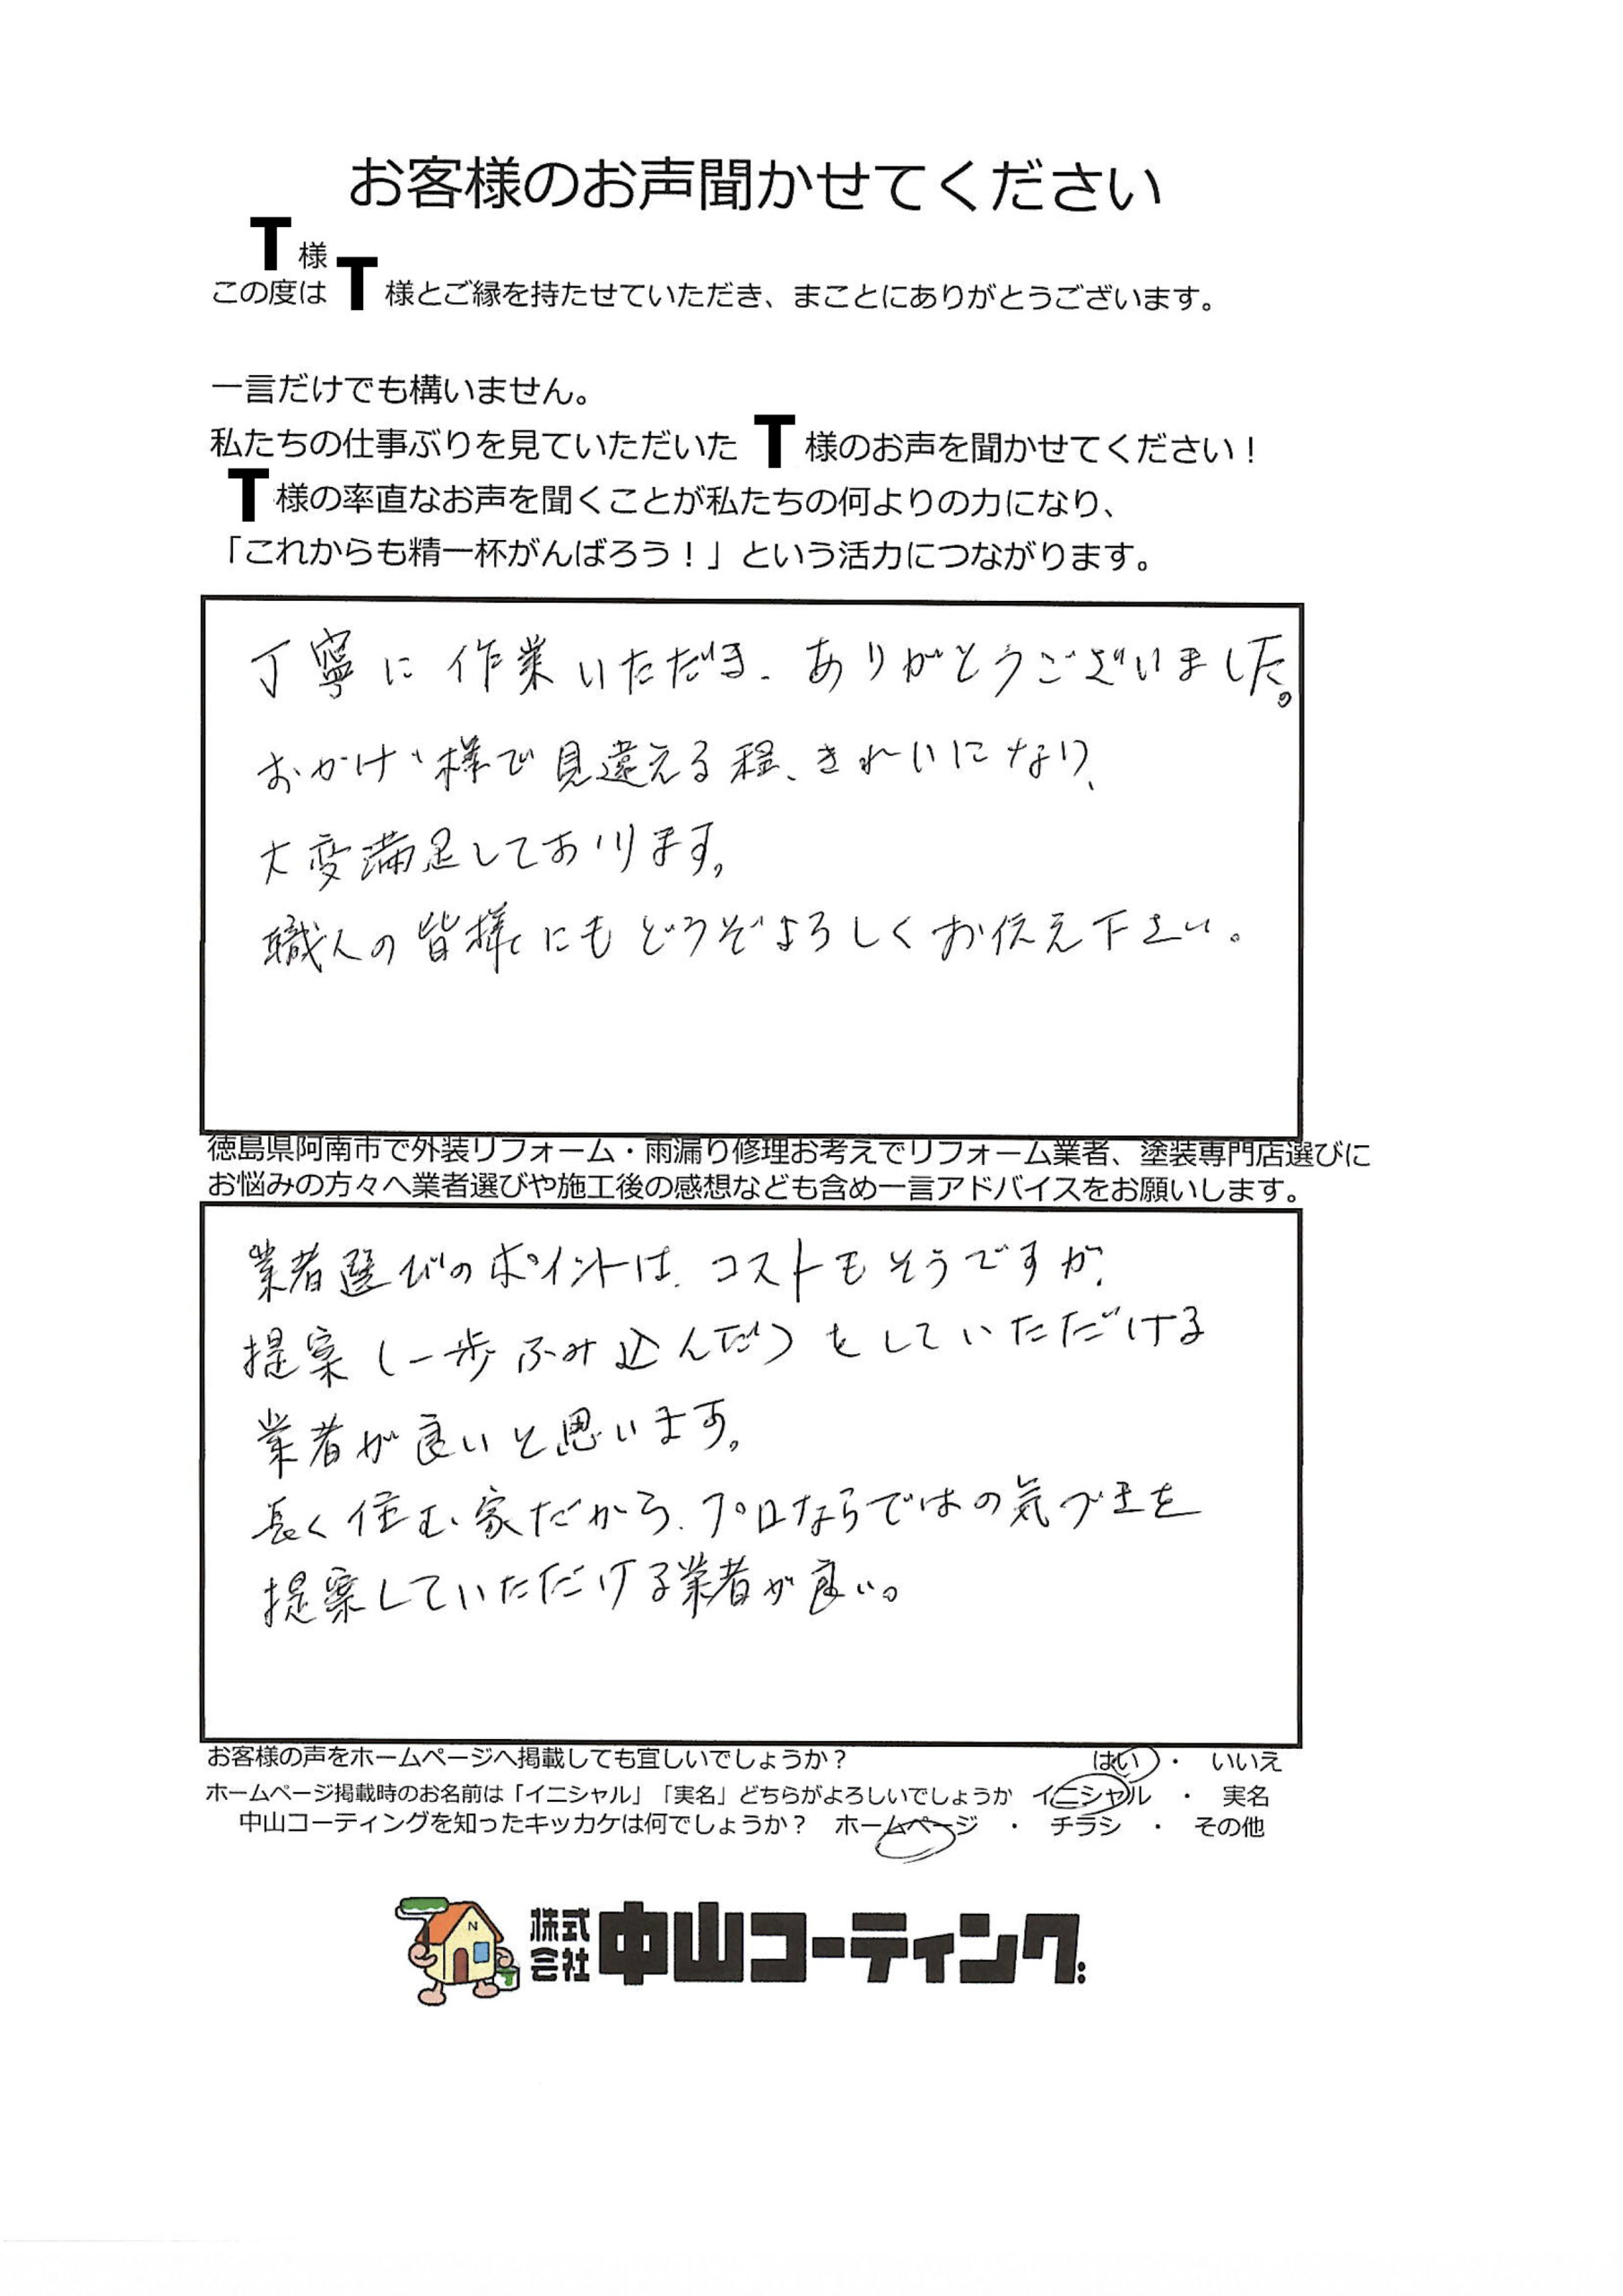 お客様のお声聞かせてください
T様
この度はT様とご縁を持たせていただき、まことにありがとうございます。
一言だけでも構いません。
私たちの仕事ぶりを見ていただいたT様のお声を聞かせてください！
T様の率直なお声を聞くことが私たちの何よりの力になり、
「これからも精一杯がんばろう！」という活力につながります。
丁寧に作業いただき、ありがとうございました。
おかげ様で見違える程、きれいになり、
大変満足しております。
職人の皆様にもどうぞよろしくお伝え下さい。
徳島県阿南市で外装リフォーム・雨漏り修理お考えでリフォーム業者、塗装専門店選びに
お悩みの方々へ業者選びや施工後の感想なども含め一言アドバイスをお願いします。
業者選びのポイントは、コストもそうですが、
提案（一歩ふみ込んだ）をしていただける
業者が良いと思います。
長く住む家だから、プロならではの気づきを
提案していただける業者が良い。
お客様の声をホームページへ掲載しても宜しいでしょうか？ はい ・ いいえ
ホームページ掲載時のお名前は「イニシャル」「実名」どちらがよろしいでしょうか イニシャル ・ 実名
中山コーティングを知ったキッカケは何でしょうか？ ホームページ ・ チラシ ・ その他
N 株式会社 中山コーティング